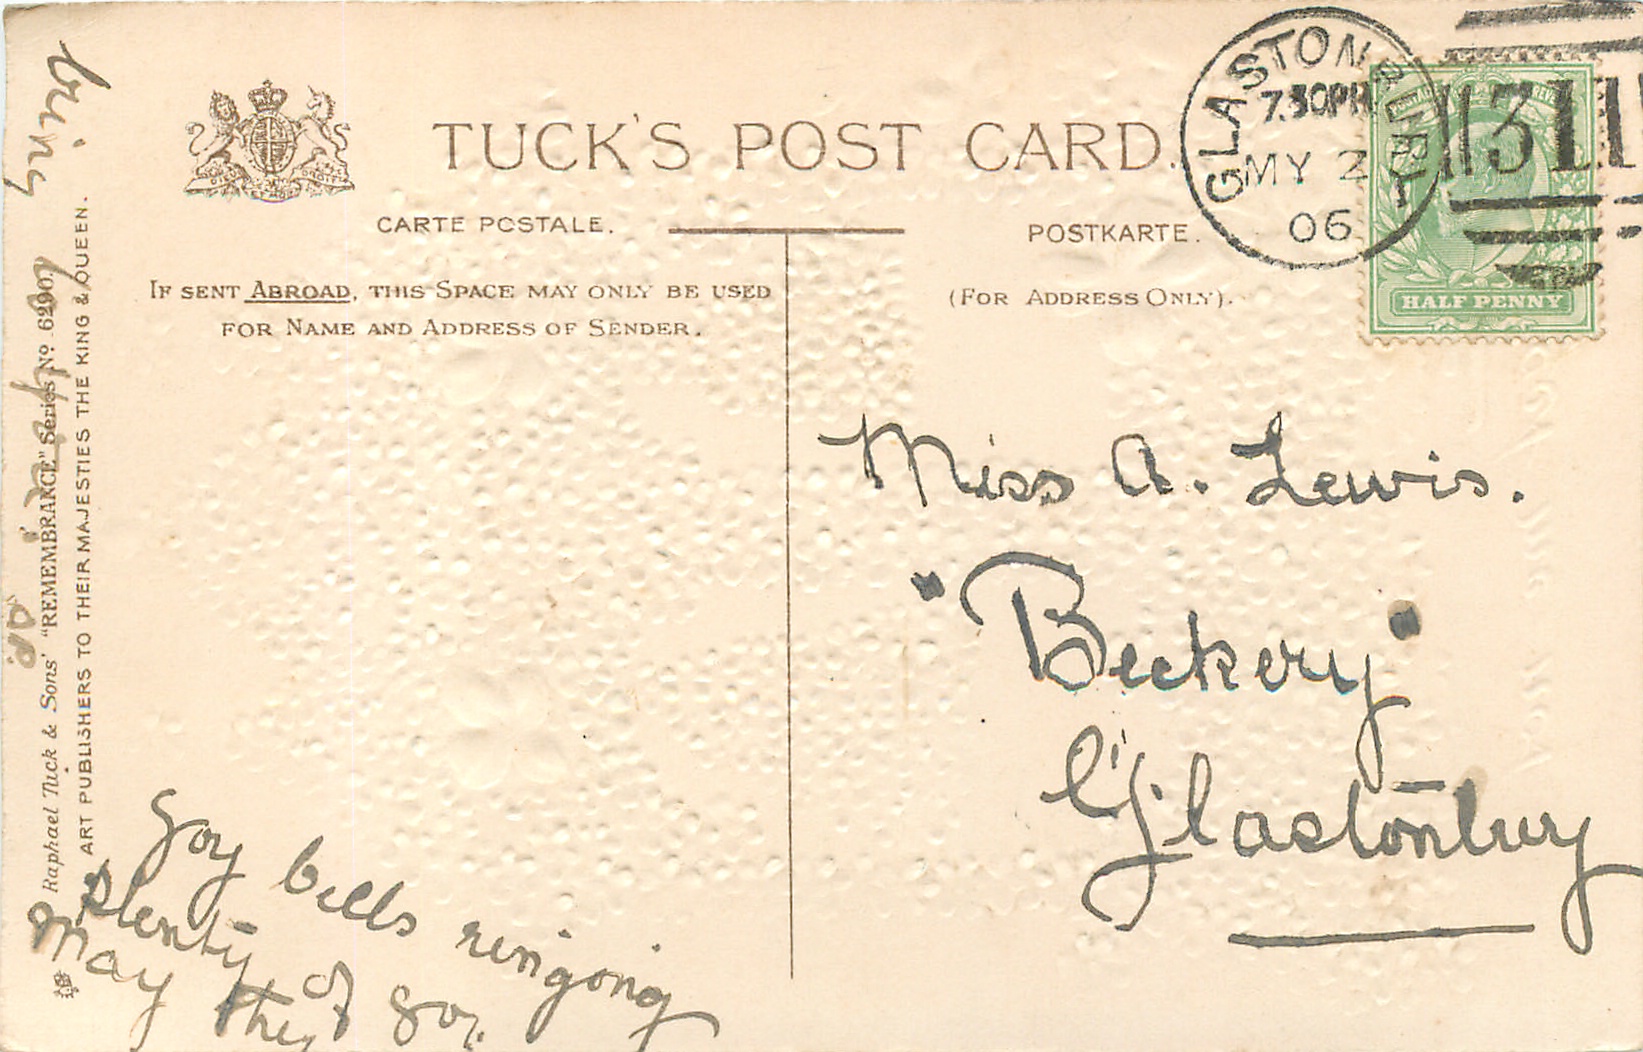 TUCK'S POST CARD.
CARTE POSTALE.
POSTKARTE.
IF SENT ABROAD, THIS SPACE MAY ONLY BE USED
FOR NAME AND ADDRESS OF SENDER.
(FOR ADDRESS ONLY).
GLASTONBURY
7.30PM
MY 2
06
311
HALF PENNY
Miss A. Lewis.
"Beckery"
Glastonbury
Joy bells ringing
plenty of joy.
May they
bring
Raphael Tuck & Sons' "REMEMBRANCE" Series No. 6290.
ART PUBLISHERS TO THEIR MAJESTIES THE KING & QUEEN.